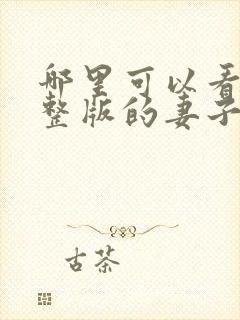 哪里可以看
整版的妻子
古茶